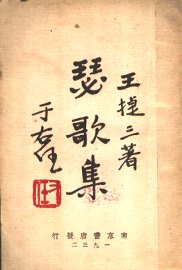 王捷三著
瑟歌集
于右任
南京書店發行
一九三二